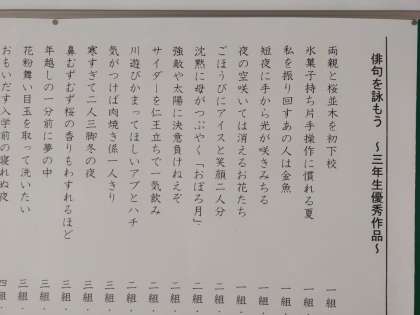 俳句を詠もう　～三年生優秀作品～
両親と桜並木を初下校　一組・
氷菓子持ち片手操作に慣れる夏　一組・
私を振り回すあの人は金魚　一組・
短夜に手から光が咲きみちる　一組・
夜の空咲いては消えるお花たち　一組・
ごほうびにアイスと笑顔二人分　二組・
沈黙に母がつぶやく「おぼろ月」　二組・
強敵や太陽に決意負けねえぞ　二組・
サイダーを仁王立ちで一気飲み　二組・
川遊びかまってほしいアブとハチ　二組・
気がつけば肉焼き係一人きり　二組・
寒すぎて二人三脚冬の夜　三組・
鼻むずむず桜の香りもわすれるほど　三組・
年越しの一分前に夢の中　三組・
花粉舞い目玉を取って洗いたい　三組・
おもいだす入学前の寝れぬ夜　四組・